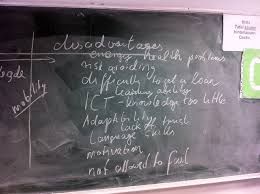 disadvantages
energy health problems
risk avoiding
difficult to get a loan
learning ability
ICT-knowledge too little
Adaptability
lack of
Language skills
motivation
not allowed to fail
mobility